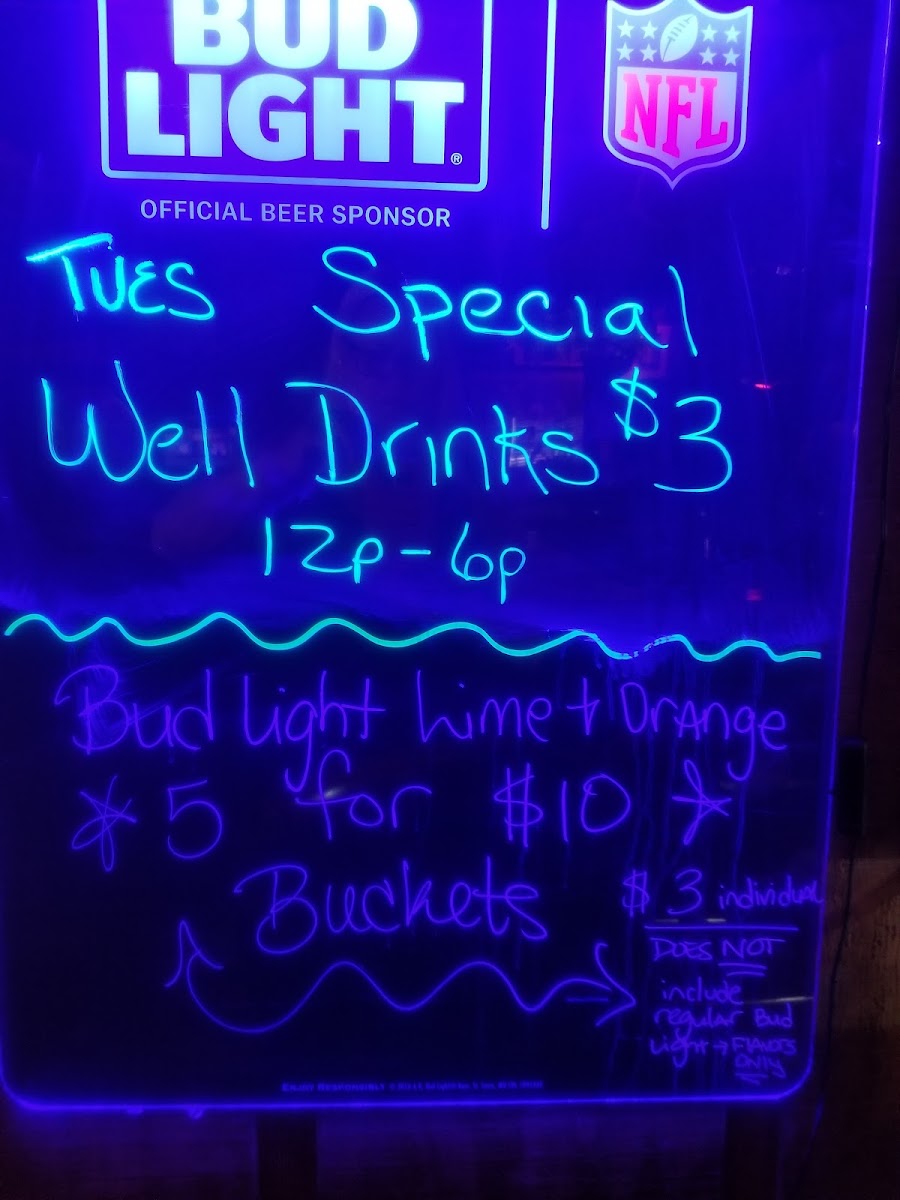 BUD
LIGHT®
NFL
OFFICIAL BEER SPONSOR
Tues Special
Well Drinks $3
12p-6p
Bud Light Lime + Orange
* 5 for $10 *
Buckets
$3 individual
DOES NOT
include
regular Bud
Light → FLAVORS
ONLY
ENJOY RESPONSIBLY